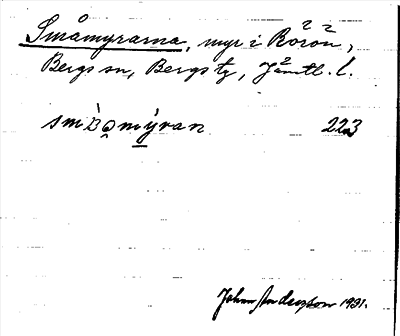 Småmyrarna, myr i Rörön,
Bergs sn, Bergs tg, Jämtl. l.
223
Johan Anderson 1931.